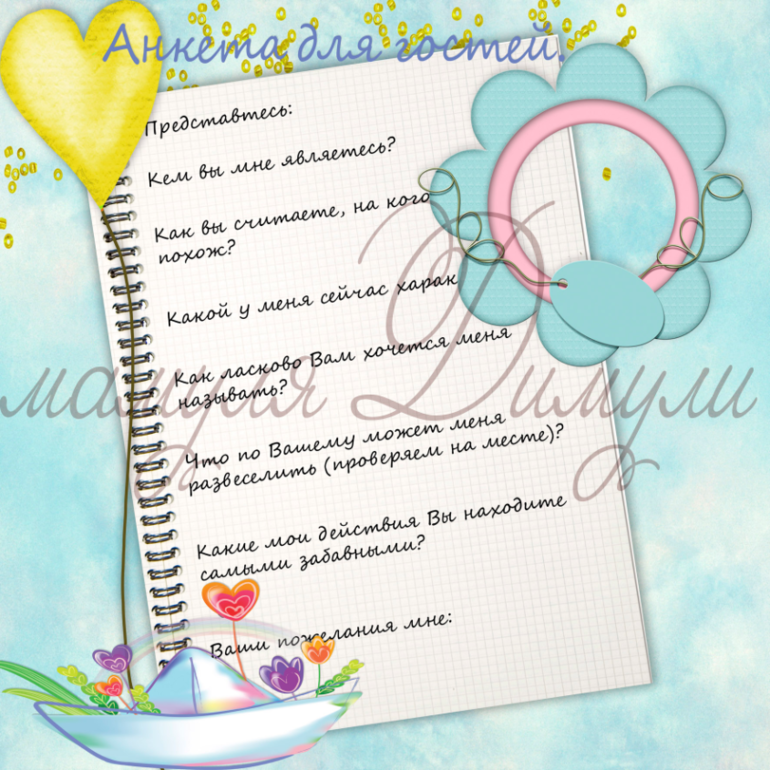 Анкета для гостей.
Представтесь:
Кем вы мне являетесь?
Как вы считаете, на кого
похож?
Какой у меня сейчас харак
Как ласково Вам хочется меня
называть?
Что по Вашему может меня
развеселить (проверяем на месте)?
Какие мои действия Вы находите
самыми забавными?
Ваши пожелания мне:
мамуля Димули